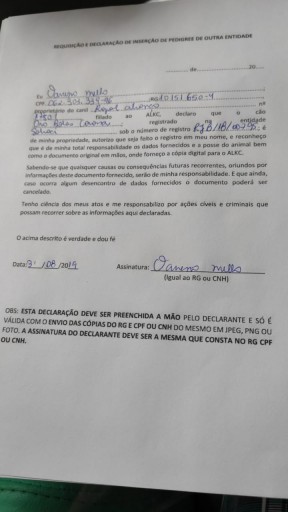 REQUISIÇÃO E DECLARAÇÃO DE INSERÇÃO DE PEDIGREE DE OUTRA ENTIDADE
de 20
Eu mello
CPF RG
proprietário do canil Royal nº
filiado ao ALKC, declaro que o cão
registrado na entidade
sob o número de registro e
de minha propriedade, autorizo que seja feito o registro em meu nome, e reconheço
que é de minha total responsabilidade os dados fornecidos e a posse do animal bem
como o documento original em mãos, onde forneço a cópia digital para o ALKC.
Sabendo-se que quaisquer causas ou consequências futuras recorrentes, oriundos por
informações deste documento fornecido, serão de minha responsabilidade. E que ainda,
caso ocorra algum desencontro de dados fornecidos o documento poderá ser
cancelado.
Tenho ciência dos meus atos e me responsabilizo por ações cíveis e criminais que
possam recorrer sobre as informações aqui declaradas.
O acima descrito é verdade e dou fé
Data: /08/2019 Assinatura: mello
(Igual ao RG ou CNH)
OBS: ESTA DECLARAÇÃO DEVE SER PREENCHIDA A MÃO PELO DECLARANTE E SÓ É
VÁLIDA COM O ENVIO DAS CÓPIAS DO RG E CPF OU CNH DO MESMO EM JPEG, PNG OU
FOTO. A ASSINATURA DO DECLARANTE DEVE SER A MESMA QUE CONSTA NO RG CPF
OU CNH.